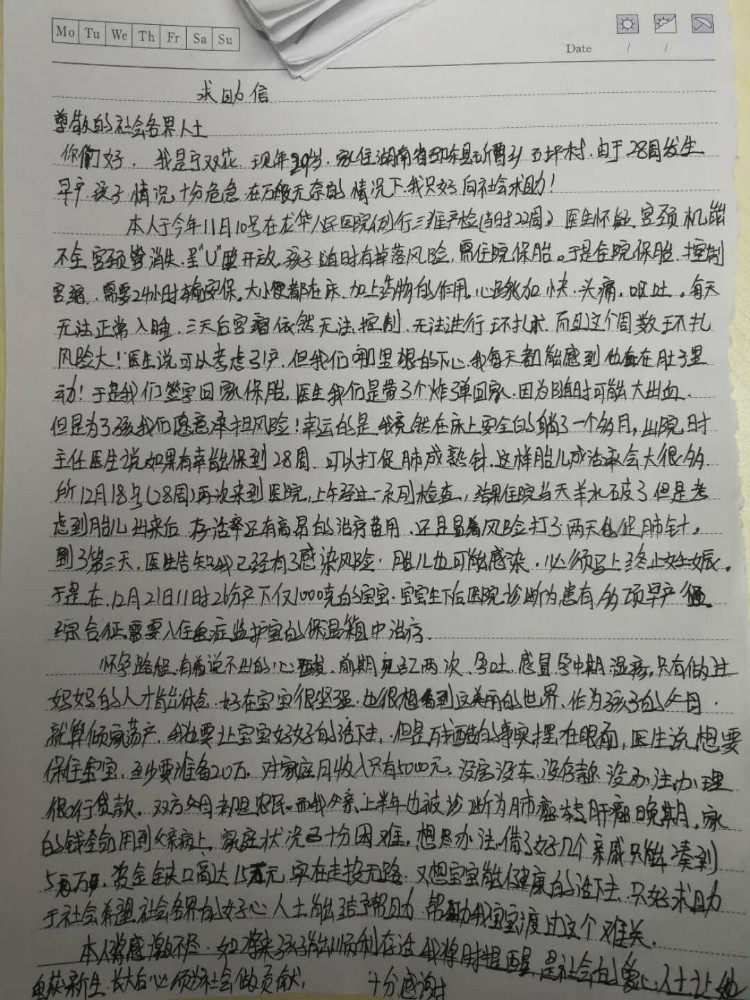 Mo Tu We Th Fr Sa Su
Date / /
求助信
尊敬的社会各界人士
你们好，我是宁双花，现年29岁，家住湖南省邵东县 五坪村，由于28周发生
早产，孩子情况十分危急，在万般无奈的情况下，我只好向社会求助！
本人于今年11月10号在龙华人民医院例行三维产检（当时22周）医生怀疑宫颈机能
不全，宫颈管消失，呈"U"型开放，孩子随时有掉落风险，需住院保胎。于是住院保胎，控制
宫缩，需要24小时 保，大小便都在床，加上药物的作用，心跳加快，头痛，呕吐，每天
无法正常入睡，三天后宫缩依然无法控制，无法进行环扎术，而且这个周数环扎
风险大！医生说可以考虑引产，但我们哪里狠的下心，我每天都能感到他在肚子里
动！于是我们签字回家保胎，医生我们是带了个炸弹回家，因为随时可能大出血，
但是为了孩我们愿意承担风险！幸运的是我竟然在床上安全的躺了一个多月，出院时
主任医生说如果有幸能保到28周，可以打促肺成熟针，这样胎儿成活率会大很多
所12月18号（28周）再次来到医院，上午经过一系列检查，结果住院当天羊水破了但是考
虑到胎儿出来后，存活率还有高昂的治疗费用，还且冒着风险打了两天的促肺针，
到了第三天，医生告知我已经有了感染风险，胎儿也可能感染，必须马上终止妊娠。
于是在，12月21日11时2分产下仅1000克的宝宝，宝宝生下后医院诊断为患有多项早产
综合征需要入住重症监护室的保温箱中治疗。
怀孕路程，有着说不出的心酸，前期 两次，孕吐，感冒孕中期湿疹，只有做过
妈妈的人才能体会，好在宝宝很坚强，也很想看到这美丽的世界，作为孩子的父母，
就算倾家荡产，我也要让宝宝好好的活下去，但是 的事实摆在眼前，医生说想要
保住宝宝，至少要准备20万，对家庭月收入只有5000元，没房没车，没存款，没办法办理
银行贷款，双方父母都是农民，而我父亲上半年也被诊断为肺癌转肝癌晚期，家
的钱全都用到父亲病上，家庭状况已十分困难，想尽办法，借了好几个亲戚只能凑到
5万，资金缺口高达15万元，实在走投无路，又想宝宝能健康的活下去，只好求助
于社会希望社会各界的好心人士能给予帮助，帮助我宝宝渡过这个难关，
本人将感激不尽，如 孩子能顺利存活，我将时提醒，是社会的爱心人士让她
重获新生，长大后必须为社会做贡献， 十分感谢